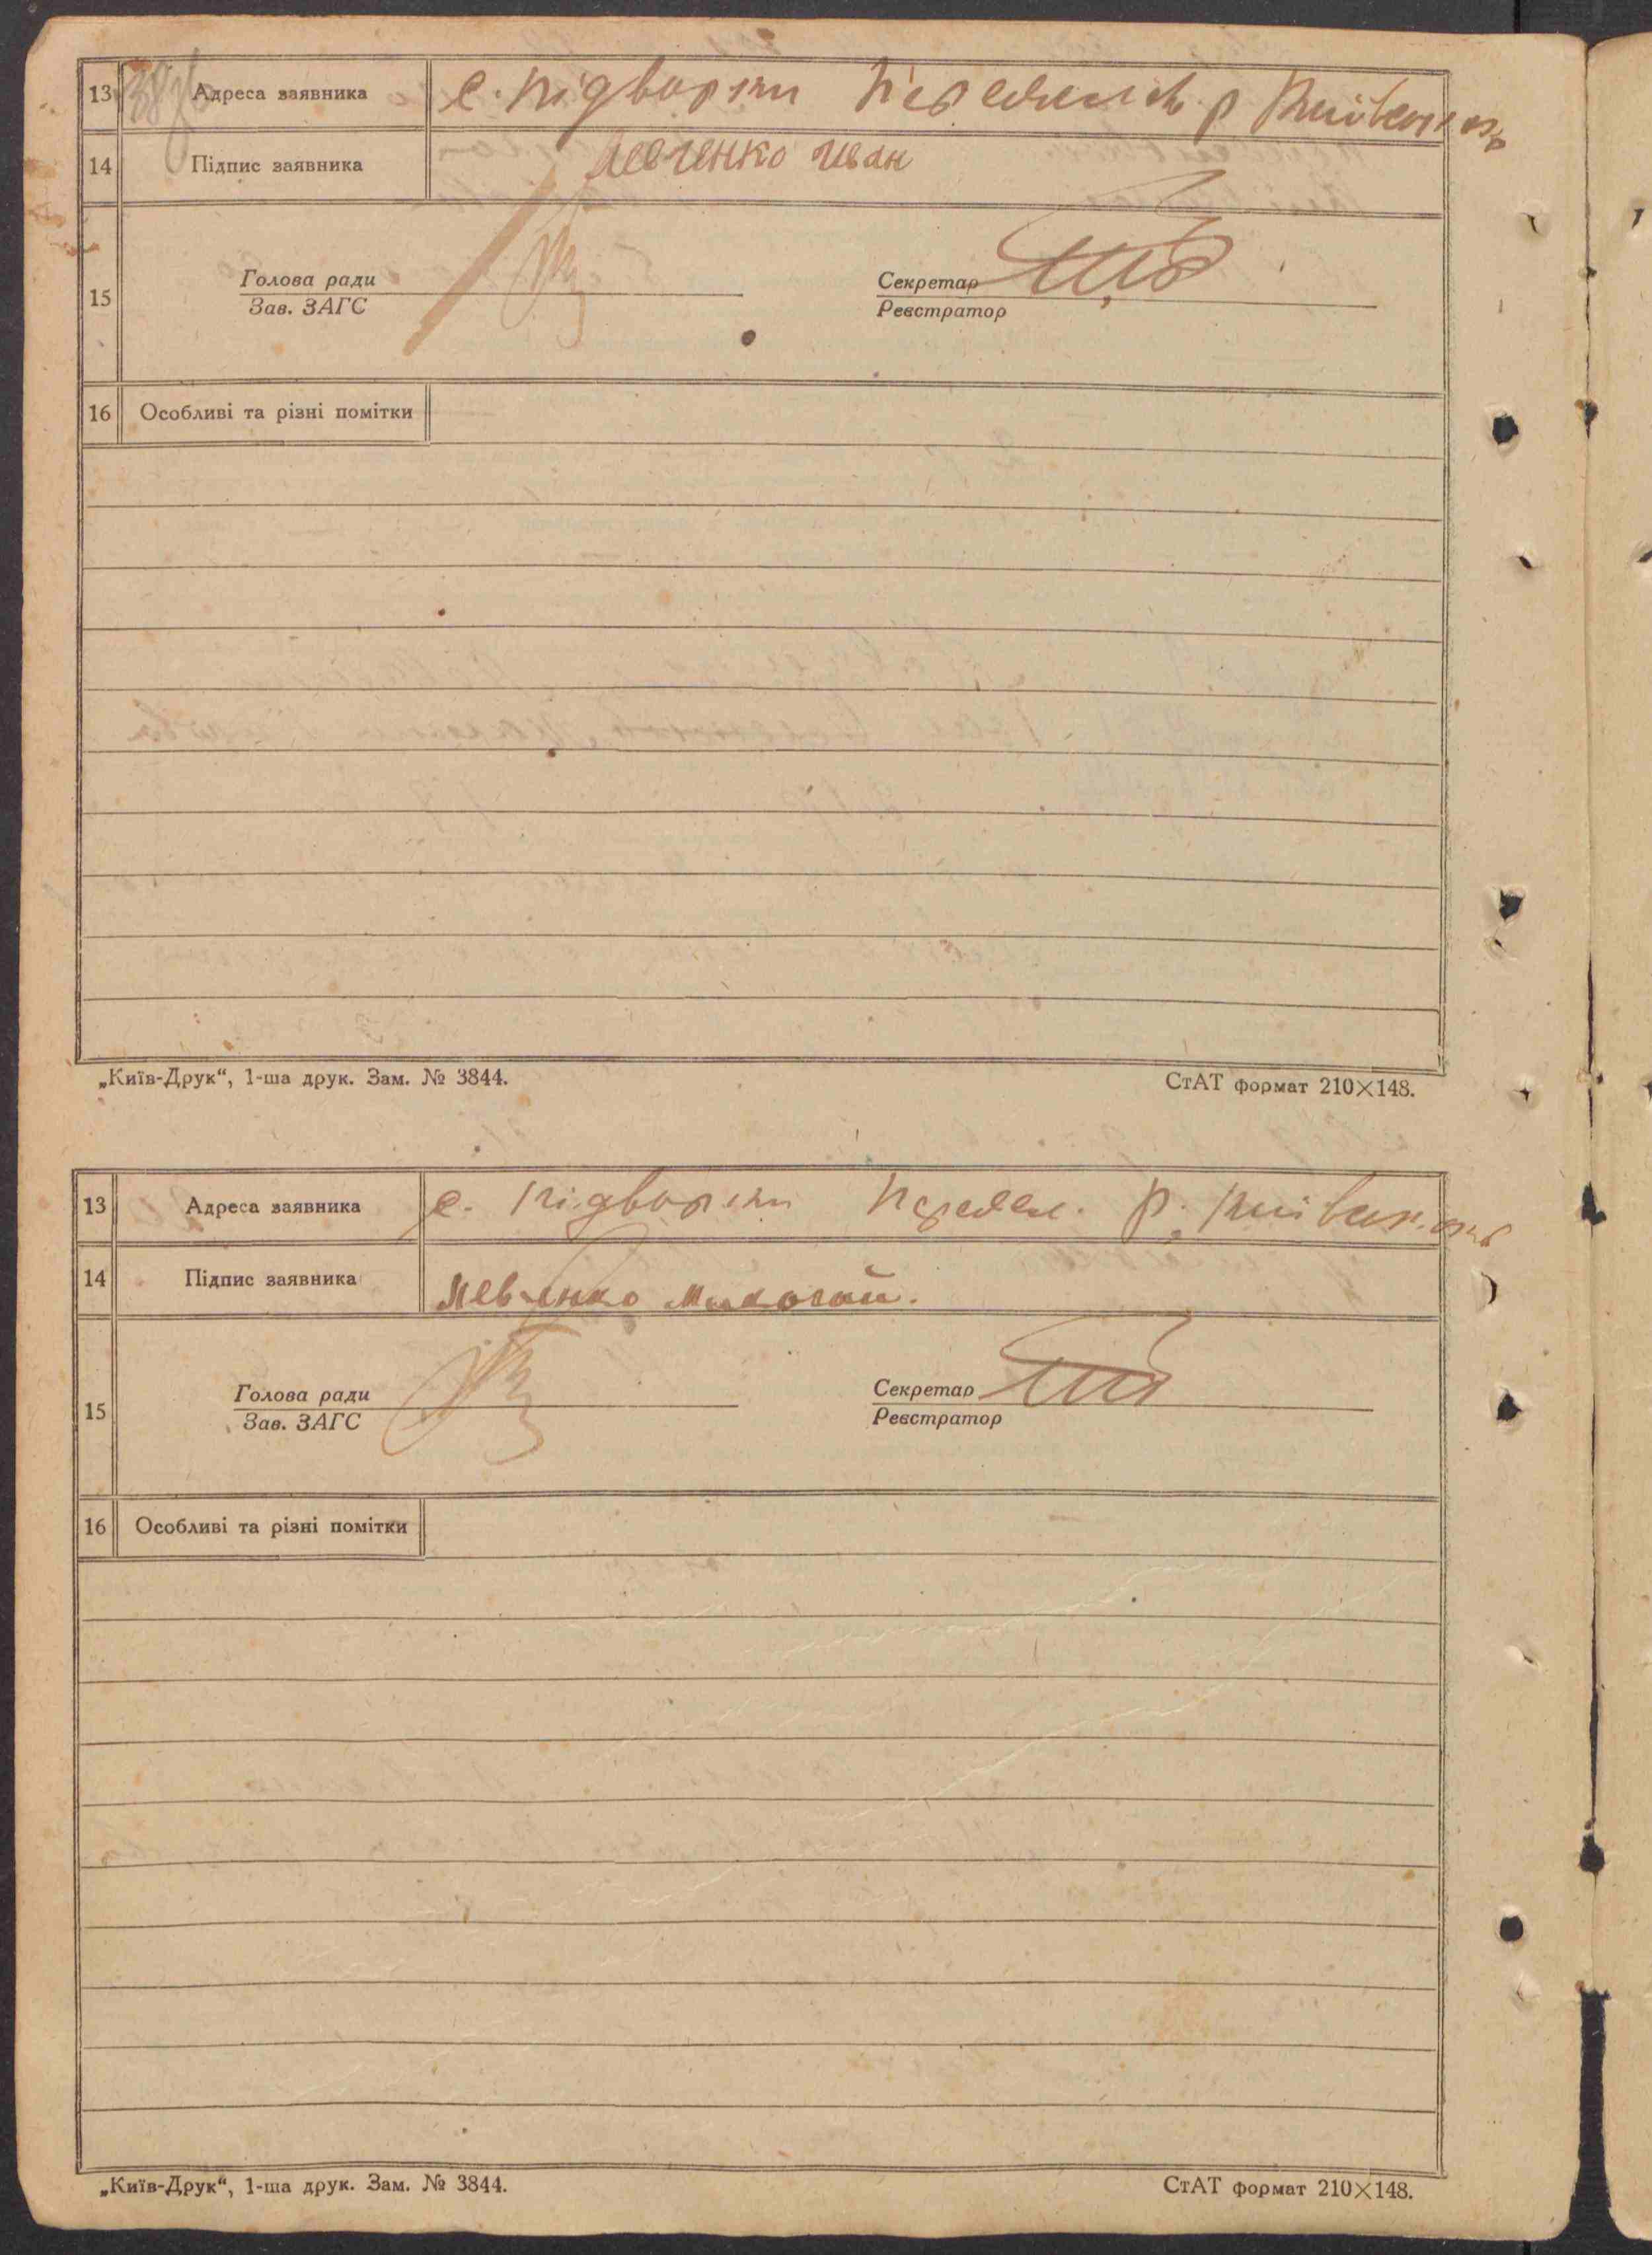 13 Адреса заявника с. Підвірки Переяслів. р Київськ. окр
14 Підпис заявника Левченко Иван
15 Голова ради Секретар
Зав. ЗАГС Реєстратор
16 Особливі та різні помітки
„Київ-Друк“, 1-ша друк. Зам. № 3844. СтАТ формат 210×148.
13 Адреса заявника с. Переясл. р. Київськ. окр
14 Підпис заявника Левченко Миколай.
15 Голова ради Секретар
Зав. ЗАГС Реєстратор
16 Особливі та різні помітки
„Київ-Друк“, 1-ша друк. Зам. № 3844. СтАТ формат 210×148.